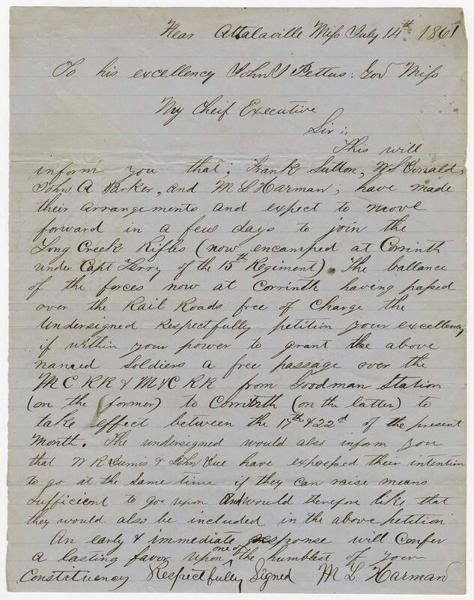 Near Attalaville Miss July 14th 1861
To his excellency John J Pettus: Gov Miss
My Cheif Executive
Sir;
This will
inform you that; Frank Sutton, W S Donald,
John A Parker, and M L Harman; have made
their arrangements and expect to move
forward in a few days to join the
Long Creek Rifles (now encamped at Corrinth
under Capt Terry of the 15th Regiment). The ballance
of the forces now at Corrinth having passed
over the Rail Roads free of charge the
Undersigned Respectfully petition your excellency
if within your power to grant the above
named Soldiers a free passage over the
M C R R & M & C R R from Goodman Station
(on the former) to Corrinth (on the latter) to
take effect between the 17th & 22d of the present
month. The undersigned would also inform you
that W R & John have expressed their intention
to go at the same time if they can raise means
sufficient to go upon and would therefore like that
they would also be included in the above petition
An early & immediate response will confer
a lasting favor upon one of the humblest of your
Constituency Respectfully Signed M L Harman